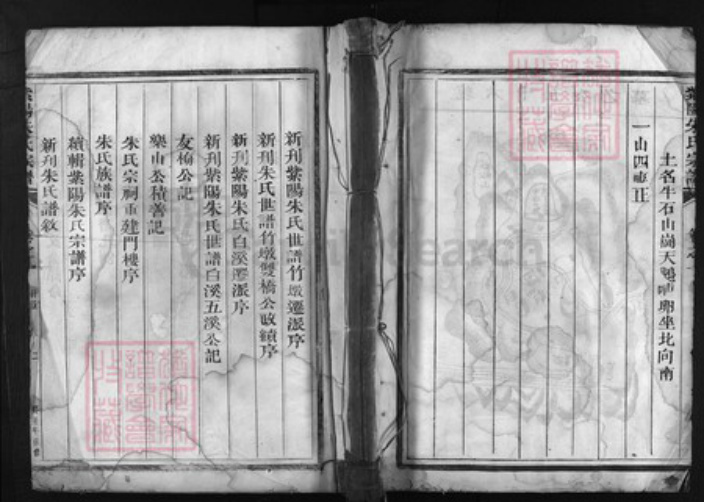 土名牛石山崗天鵝晡卵坐北向南
一山四畝正
紫陽朱氏宗譜
新刋紫陽朱氏世譜竹墩遷派序
新刋朱氏世譜竹墩雙橋公政績序
新刋紫陽朱氏白溪遷派序
新刋紫陽朱氏世譜白溪五溪公記
友榆公記
樂山公積善記
朱氏宗祠重建門樓序
朱氏族譜序
續輯紫陽朱氏宗譜序
新刋朱氏譜敘
紫陽朱氏宗譜